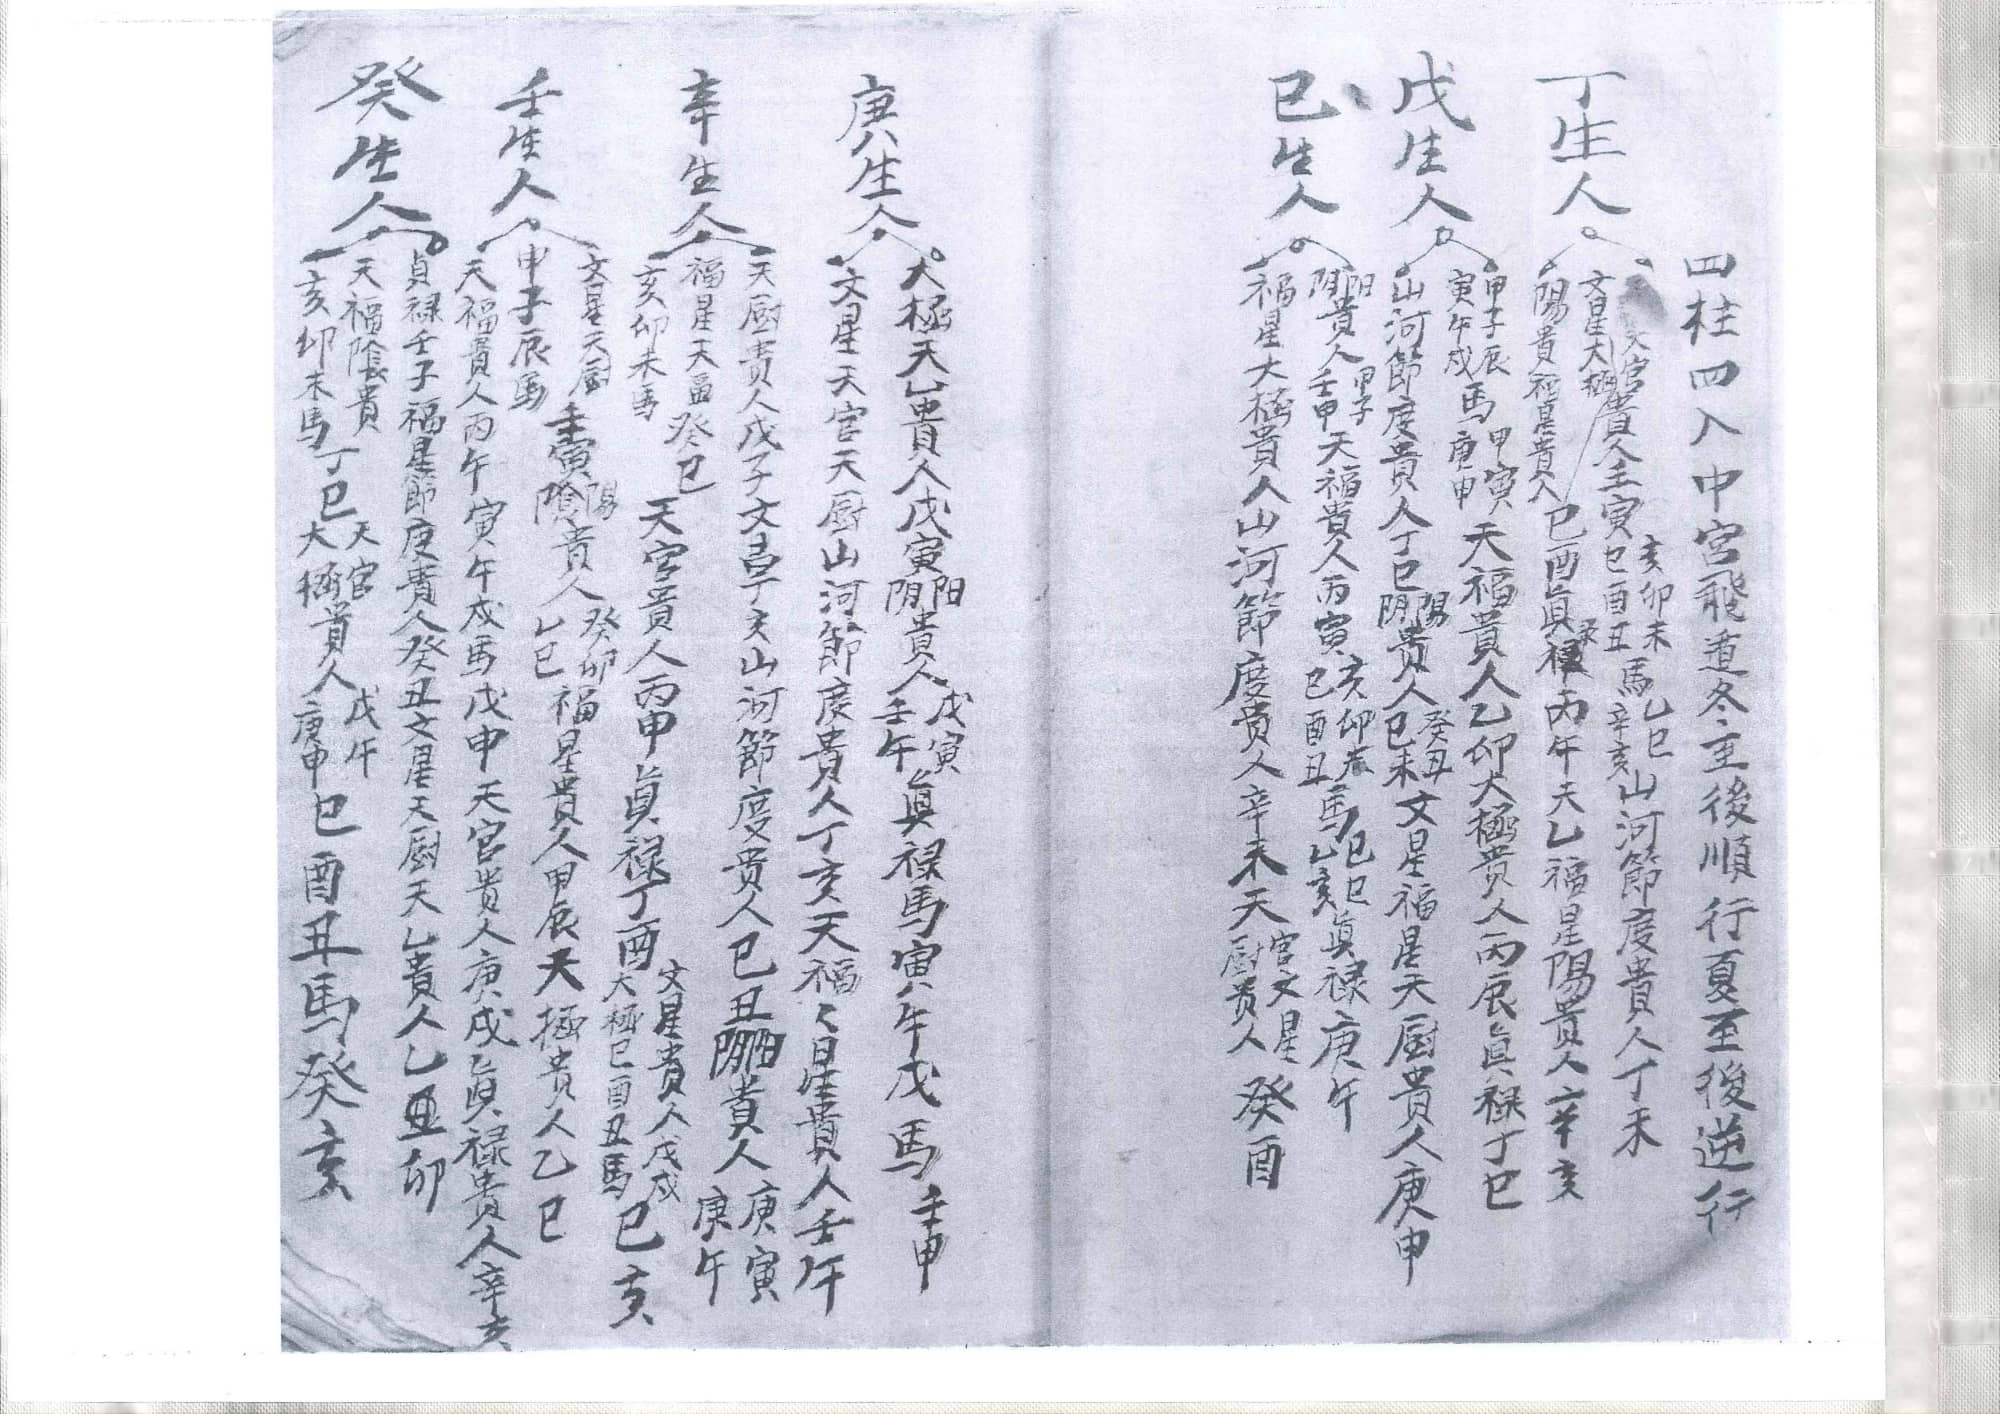 四柱四入中宮飛遁冬至後順行夏至後逆行
丁生人
天官貴人壬寅 亥卯未 巳酉丑 馬 乙巳 辛亥 山河節度貴人丁未
文星大極 陽貴福星貴人 己酉眞祿丙午天乙福星陽貴人辛亥
戊生人
甲子辰 寅午戌 馬 甲寅 庚申 天福貴人乙卯大極貴人丙辰眞禄丁巳
山河節度貴人丁巳 陽 阴 貴人 癸丑 己未 文星福星天厨貴人庚申
己生人
阳 阴 貴人 甲子 壬申 天福貴人丙寅 亥卯未 巳酉丑 馬 己巳 乙亥 眞禄庚午
福星大極貴人山河節度貴人辛未天 官文星 厨貴人 癸酉
庚生人
大極天乙貴人戊寅 阳 阴 貴人 戊寅 壬午 眞禄馬寅午戌馬壬申
文星天官天厨山河節度貴人丁亥天福〻星貴人壬午
辛生人
天厨貴人戊子文昌丁亥山河節度貴人己丑 阳 阴 貴人 庚寅 庚午
福星天福 亥卯未馬 癸巳 天官貴人丙申眞禄丁酉 文星貴人戊戌 大極巳酉丑馬 己亥
壬生人
文星天厨 申子辰馬 壬寅 陽 陰 貴人 癸卯 乙巳 福星貴人甲辰天極貴人乙巳
天福貴人丙午寅午戌馬戊申天官貴人庚戌眞禄貴人辛亥
癸生人
貞禄壬子福星節度貴人癸丑文星天厨天乙貴人乙丑卯
天福陰貴 亥卯未馬 丁巳 天官 大極 貴人 戊午 庚申 巳酉丑馬癸亥